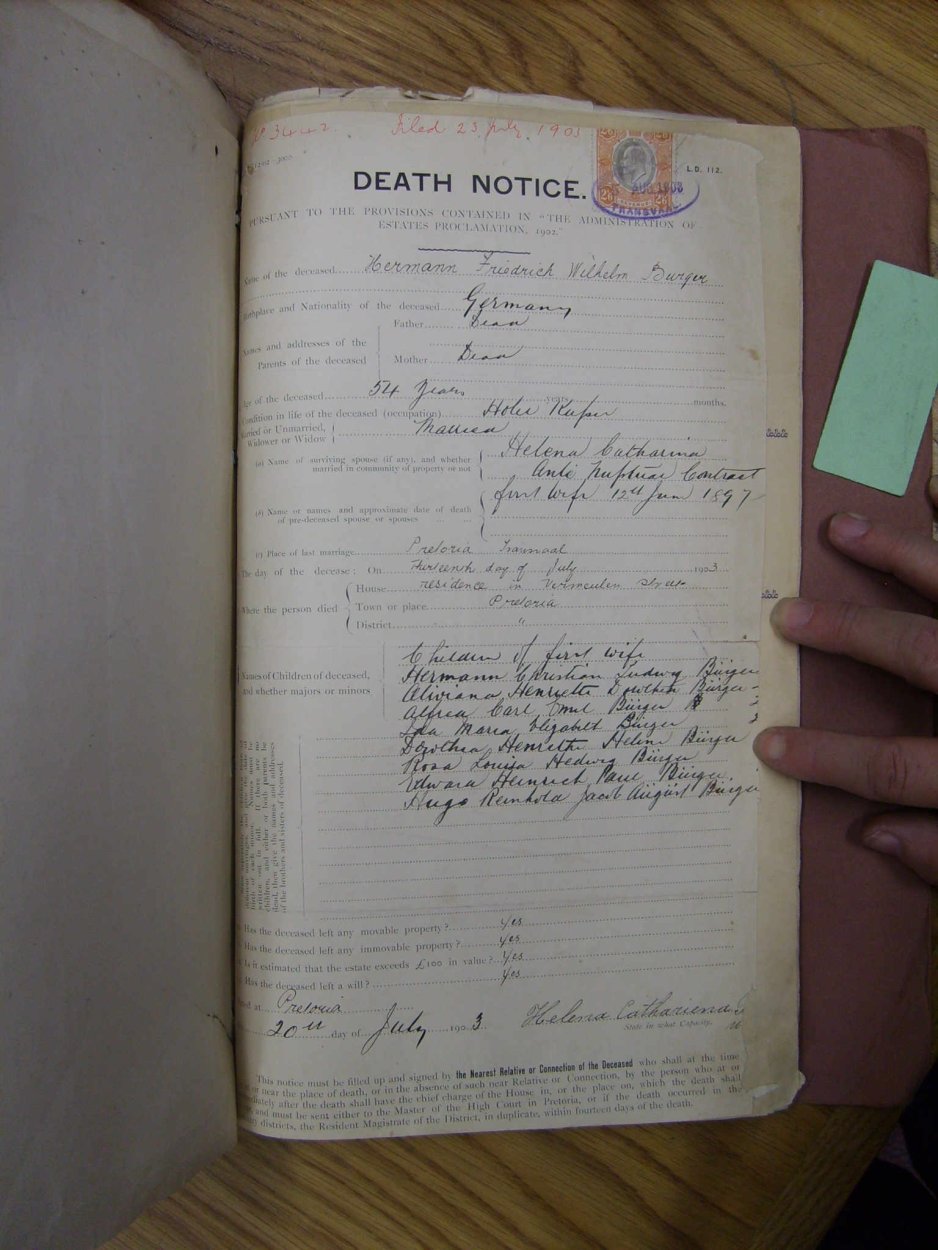 3442. Filed 23 July 1903
L.D. 112.
2/6 2/6
AUG 1903
REVENUE
2/6 2/6
TRANSVAAL
DEATH NOTICE.
PURSUANT TO THE PROVISIONS CONTAINED IN "THE ADMINISTRATION OF
ESTATES PROCLAMATION, 1902."
Name of the deceased Hermann Friedrich Wilhelm Burger
Birthplace and Nationality of the deceased Germany
Father Dead
Names and addresses of the
Parents of the deceased
Mother Dead
Age of the deceased 54 Years years months.
Condition in life of the deceased (occupation) Hotel Keeper
Married or Unmarried,
Widower or Widow Married
(a) Name of surviving spouse (if any), and whether
married in community of property or not
Helena Catharina
Anti Nuptual Contract
first wife 12th June 1897
(b) Name or names and approximate date of death
of pre-deceased spouse or spouses
(c) Place of last marriage Pretoria Transvaal
The day of the decease: On Thirteenth day of July 1903.
House residence in Vermeulen Street
Where the person died Town or place Pretoria
District "
Names of Children of deceased,
and whether majors or minors
Children of first wife
Hermann Christian Ludwig Bürger
Henriette Dorothea Bürger
Alfred Carl Emil Bürger
Ida Maria Elizabet Bürger
Dorothea Henriette Helene Bürger
Rosa Louisa Hedwig Bürger
Edward Heinrich Paul Bürger.
Hugo Reinhold Jacob August Bürger
written out in full. If there are no
children, and either or both parents be
dead, then give the names and addresses
of the brothers and sisters of deceased.
Has the deceased left any movable property? Yes
Has the deceased left any immovable property? Yes
Is it estimated that the estate exceeds £100 in value? Yes
Has the deceased left a will? Yes
at Pretoria
20th day of July 1903. Helena Cathariena
State in what Capacity.
This notice must be filled up and signed by the Nearest Relative or Connection of the Deceased who shall at the time
or near the place of death, or in the absence of such near Relative or Connection, by the person who at or
immediately after the death shall have the chief charge of the House in, or the place on, which the death shall
and must be sent either to the Master of the High Court in Pretoria, or if the death occurred in the
districts, the Resident Magistrate of the District, in duplicate, within fourteen days of the death.